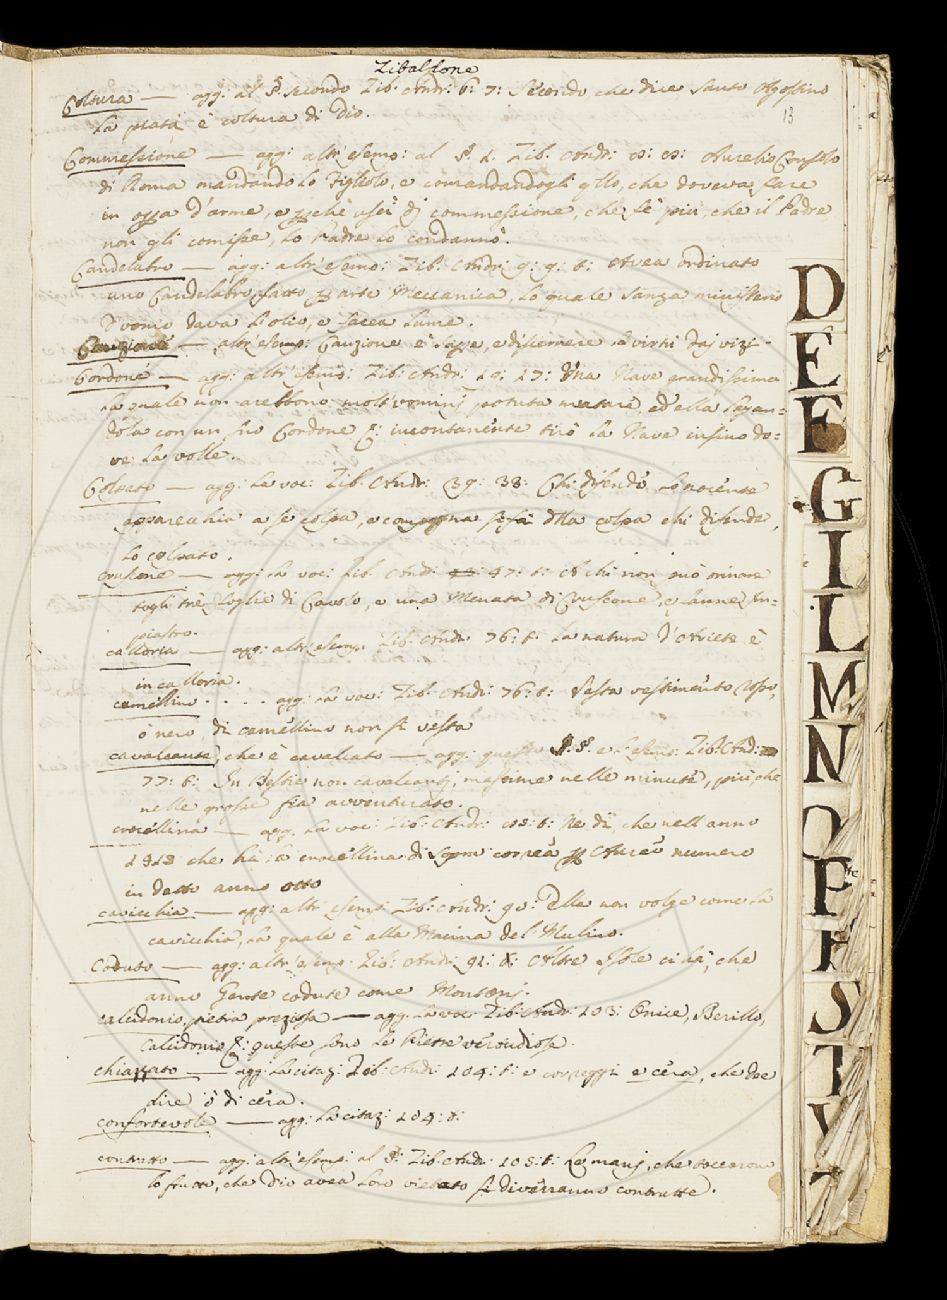 Zibaldone
13
Coltura — agg: al §. secondo Zib: Andr: 6: 7: Secondo, che dice Santo Agostino
la pietà è coltura di Dio.
Commessione — agg: altr'esemp: al §. 1. Zib. Andr: Aurelio Consolo
di Roma mandando lo Figliolo, e comandandogli qllo, che doveva fare
in d'arme, e uscì di commessione, che fè più, che il Padre
non gli comisse, lo Padre lo condannò.
Candelabro — agg: altr'esemp: Zib: Andr: 9: 9: t: Avea ordinato
uno Candelabro fatto arte Meccanica, lo quale sanza ministerio
d'uomo dava l'olio, e facea lume.
Cauzione — altr'esemp: Cauzione è sapere, e discernere le virtù dai vizi.
Cordone — agg: altr'esemp: Zib: Andr: 10: 17: Una Nave grandissima
la quale non arebbono molti uomini potuta mutare, ed ella legan=
dola con un suo Cordone incontanente tirò la Nave insino do=
ve la volle.
Colpato — agg: la voc: Zib: Andr: 39: 38: Chi difende lo nocente
apparecchia a se colpa, e compagna si fà dlla colpa chi difende,
lo colpato.
Cruscone — agg: la voc: Zib: Andr: 47: t: A chi non può orinare
togli trè foglie di Cavolo, e una Menata di Cruscone, e fanne Im=
piastro.
calloria — agg: altr'esemp: Zib: Andr: 76: t: La natura d'Ariete è
in calloria.
camellino . . . . agg: la voc: Zib: Andr: 76: t: Vesta vestimento rosso,
o nero, di camellino non si vesta
cavalcante, che è cavalcato — agg: questo §. e l'esemp: Zib: Andr:
77: t: In Bestie non cavalcanti, massime nelle minute, più, che
nelle grosse sia avventurato.
crocellina — agg: la voc: Zib: Andr: t: Se dì, che nell'anno
1313 che hà la crocellina di sopra correa Aureo numero
in detto anno otto
cavicchia — agg: altr'esemp: Zib: Andr: 90: Ella non volge come la
cavicchia, la quale è alla Macina del Mulino.
Coduto — agg: altr'esemp: Zib: Andr: 91: t: Altre Isole ci hà, che
anno Gente codute come Montoni.
calcidonio, pietra preziosa — agg. la voc: Zib: Andr: 103: Onice, Berillo,
calcidonio queste sono le Pietre
chiappato — agg: la citaz: Zib: Andr: 104: t: e correggi e cera, che dee
dire ò di cera.
confortevole — agg: la citaz: 104: t:
contratto — agg: altr'esemp: al §: Zib: Andr: 105: t: Le mani, che toccarono
lo frutto, che Dio avea loro vietato si diverranno contratte.
D
E
F
G
I
L
M
N
O
P
R
S
T
V
Z